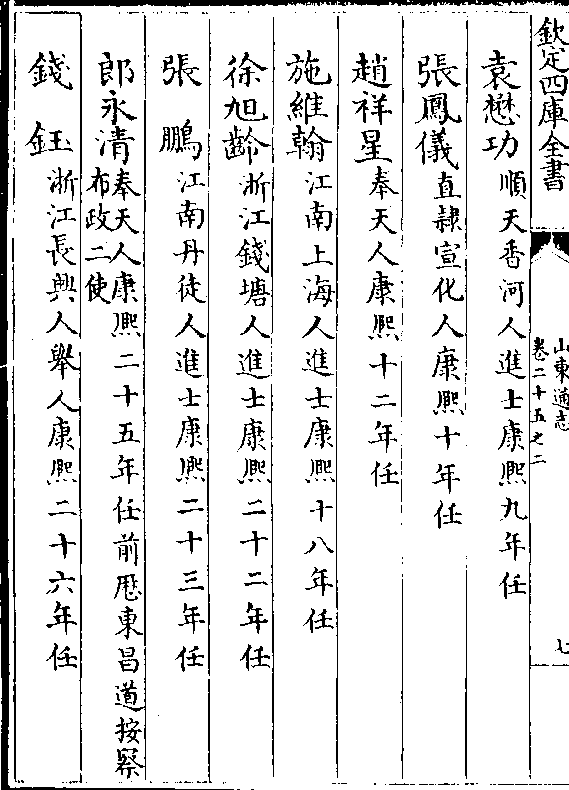 欽定四庫全書
山東通志
卷二十五之二
七
袁懋功順天香河人進士康熙九年任
張鳳儀直隸宣化人康熙十年任
趙祥星奉天人康熙十二年任
施維翰江南上海人進士康熙十八年任
徐旭齡浙江錢塘人進士康熙二十二年任
張鵬江南丹徒人進士康熙二十三年任
郎永清奉天人康熙二十五年任前歷東昌道按察
布政二使
錢鈺浙江長興人舉人康熙二十六年任